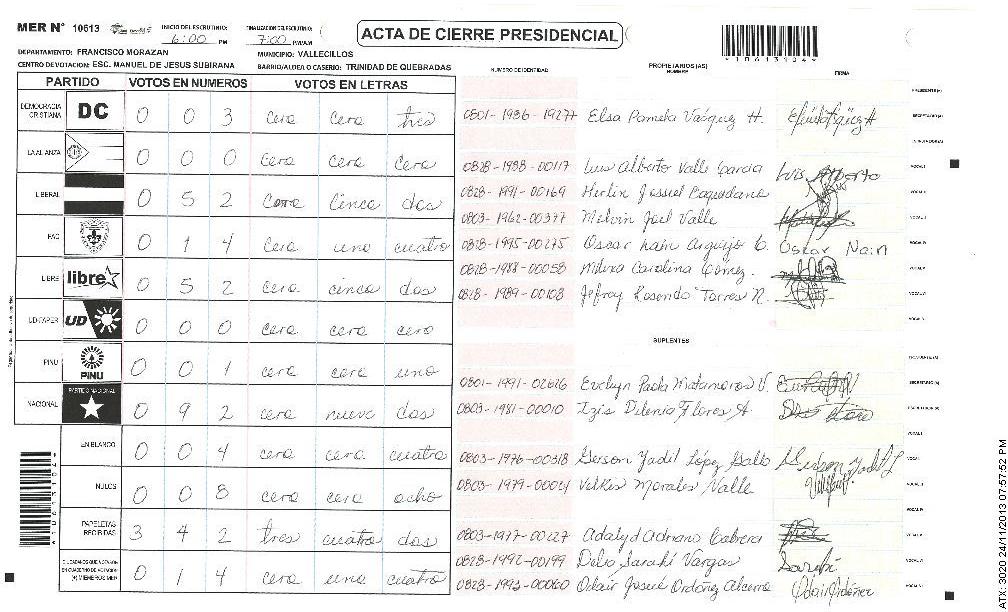 MER N° 10613 INICIO DEL ESCRUTINIO: 6:00 PM FINALIZACION DEL ESCRUTINIO: 7:00 PM/AM
ACTA DE CIERRE PRESIDENCIAL
DEPARTAMENTO: FRANCISCO MORAZAN MUNICIPIO: VALLECILLOS
CENTRO DE VOTACION: ESC. MANUEL DE JESUS SUBIRANA BARRIO/ALDEA O CASERIO: TRINIDAD DE QUEBRADAS
PARTIDO VOTOS EN NUMEROS VOTOS EN LETRAS
DEMOCRACIA CRISTIANA DC 0 0 3 cero cero tres
LA ALIANZA 0 0 0 cero cero cero
LIBERAL 0 5 2 cero cinco dos
PAC 0 1 4 cero uno cuatro
LIBRE libre 0 5 2 cero cinco dos
UD FAPER UD 0 0 0 cero cero cero
PINU PINU 0 0 1 cero cero uno
NACIONAL PARTIDO NACIONAL 0 9 2 cero nueve dos
EN BLANCO 0 0 4 cero cero cuatro
NULOS 0 0 8 cero cero ocho
PAPELETAS RECIBIDAS 3 4 2 tres cuatro dos
CIUDADANOS QUE VOTARON EN CUADERNO DE VOTACION (+) MIEMBROS MER 0 1 4 cero uno cuatro
NUMERO DE IDENTIDAD PROPIETARIOS (AS) NOMBRE FIRMA
PRESIDENTE (A)
0801-1986-19277 Elsa Pamela Vasquez H. SECRETARIO (A)
0828-1988-00117 Luis Alberto Valle Garcia Luis Alberto VOCAL I
0828-1991-00169 Herlin Josuel
0803-1962-00377 Melvin Joel Valle
0828-1995-00275 Oscar Nain Oscar Nain
0828-1988-00058 Carolina Gomez
0828-1989-00108 Jefray Rosendo Torres R.
SUPLENTES
0801-1991-02626 Evelyn Paola Matamoros V. SECRETARIO (A)
0803-1981-00010 Izis Dilenia Flores A.
0803-1976-00318 Gerson Yadil López Gerson Yadil L
Morales Valle
0803-1977-00227 Adalyd Adriano Cabrera
0828-1992-00199 Delia Sarahi Vargas Sarahi
Odair Josué Ordóñez Odair Ordoñez
*10613104*
ATX-3020 24/11/2013 07:57:52 PM